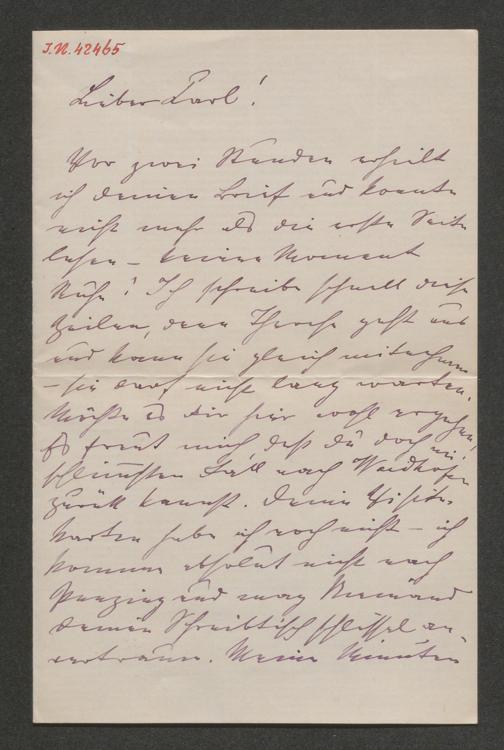 I.N. 42465
Lieber Karl!
Vor zwei Stunden erhielt
ich deinen Brief und konnte
nicht mehr als die erste Seite
lesen – keinen Moment
Ruhe! Ich schreibe schnell diese
Zeilen, denn Therese geht aus
und kann sie gleich mitnehmen
– sie darf nicht lang warten.
Möchte es dir hier wohl ergehen!
Es freut mich daß du doch im
schlimmsten Fall nach Waidhofen
zurück kannst. Deine Visite-
karten habe ich noch nicht – ich
komme absolut nicht nach
Penzing und mag Niemand
deinen Schreibtischschlüssel an-
vertrauen. Meine Minuten